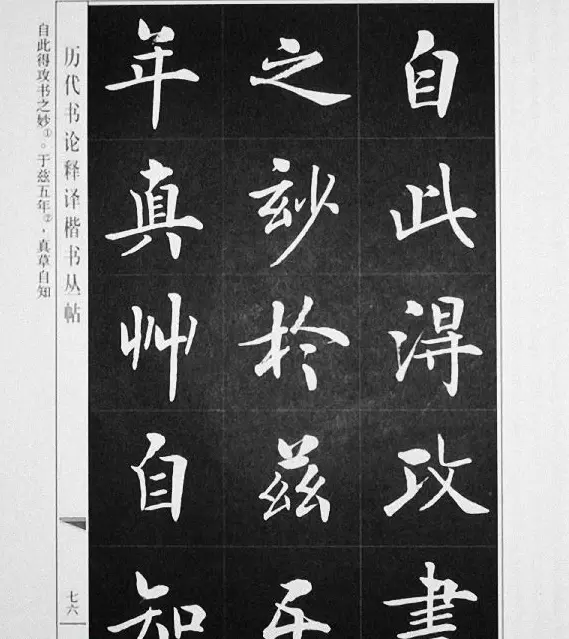 自此淂攻書
之玅於兹五
年真艸自知
历代书论释译楷书丛帖
七六
自此得攻书之妙①。于兹五年②，真草自知